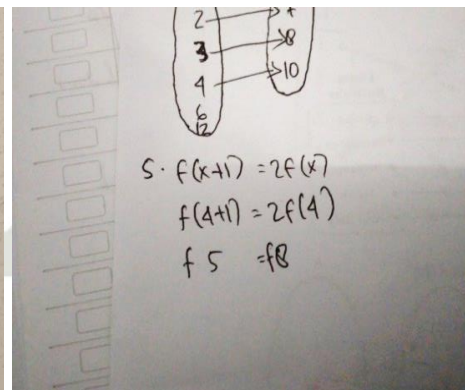 2
3 8
4 10
6
12
5. f(x+1) = 2f(x)
f(4+1) = 2f(4)
f 5 = f8